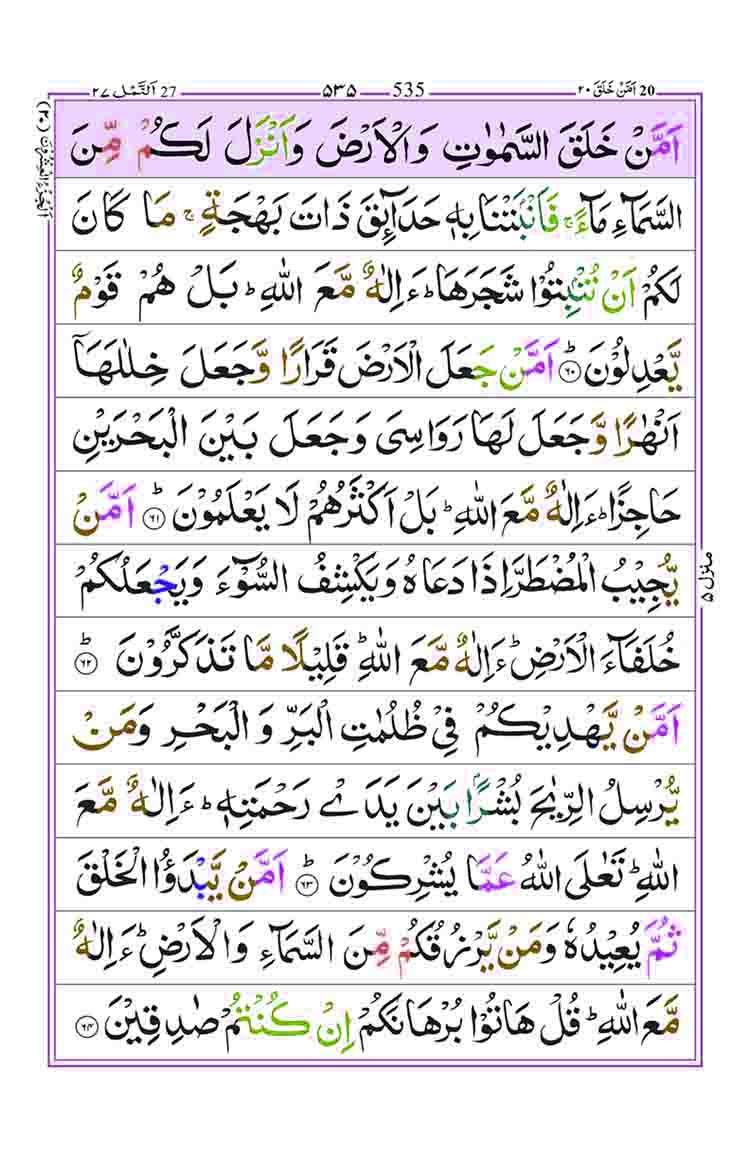 20 اَمَّنْ خَلَقَ ۲۰ 535 ۵۳۵ 27 اَلنَّمْل ۲۷
اَلْجُزْءُ الْعِشْرُوْنَ (۲۰)
اَمَّنْ خَلَقَ السَّمٰوٰتِ وَالْاَرْضَ وَاَنْزَلَ لَكُمْ مِّنَ
السَّمَآءِ مَآءً ۚ فَاَنْۢبَتْنَا بِهٖ حَدَآئِقَ ذَاتَ بَهْجَةٍ ۚ مَا كَانَ
لَكُمْ اَنْ تُنْۢبِتُوْا شَجَرَهَا ؕ ءَاِلٰهٌ مَّعَ اللّٰهِ ؕ بَلْ هُمْ قَوْمٌ
يَّعْدِلُوْنَ ؕ ﴿۶۰﴾ اَمَّنْ جَعَلَ الْاَرْضَ قَرَارًا وَّجَعَلَ خِلٰلَهَاۤ
اَنْهٰرًا وَّجَعَلَ لَهَا رَوَاسِىَ وَجَعَلَ بَيْنَ الْبَحْرَيْنِ
حَاجِزًا ؕ ءَاِلٰهٌ مَّعَ اللّٰهِ ؕ بَلْ اَكْثَرُهُمْ لَا يَعْلَمُوْنَ ؕ ﴿۶۱﴾ اَمَّنْ
يُّجِيْبُ الْمُضْطَرَّ اِذَا دَعَاهُ وَيَكْشِفُ السُّوْٓءَ وَيَجْعَلُكُمْ
خُلَفَآءَ الْاَرْضِ ؕ ءَاِلٰهٌ مَّعَ اللّٰهِ ؕ قَلِيْلًا مَّا تَذَكَّرُوْنَ ؕ ﴿۶۲﴾
اَمَّنْ يَّهْدِيْكُمْ فِىْ ظُلُمٰتِ الْبَرِّ وَالْبَحْرِ وَمَنْ
يُّرْسِلُ الرِّيٰحَ بُشْرًۢا بَيْنَ يَدَىْ رَحْمَتِهٖ ؕ ءَاِلٰهٌ مَّعَ
اللّٰهِ ؕ تَعٰلَى اللّٰهُ عَمَّا يُشْرِكُوْنَ ؕ ﴿۶۳﴾ اَمَّنْ يَّبْدَؤُا الْخَلْقَ
ثُمَّ يُعِيْدُهٗ وَمَنْ يَّرْزُقُكُمْ مِّنَ السَّمَآءِ وَالْاَرْضِ ؕ ءَاِلٰهٌ
مَّعَ اللّٰهِ ؕ قُلْ هَاتُوْا بُرْهَانَكُمْ اِنْ كُنْتُمْ صٰدِقِيْنَ ﴿۶۴﴾
منزل ۵